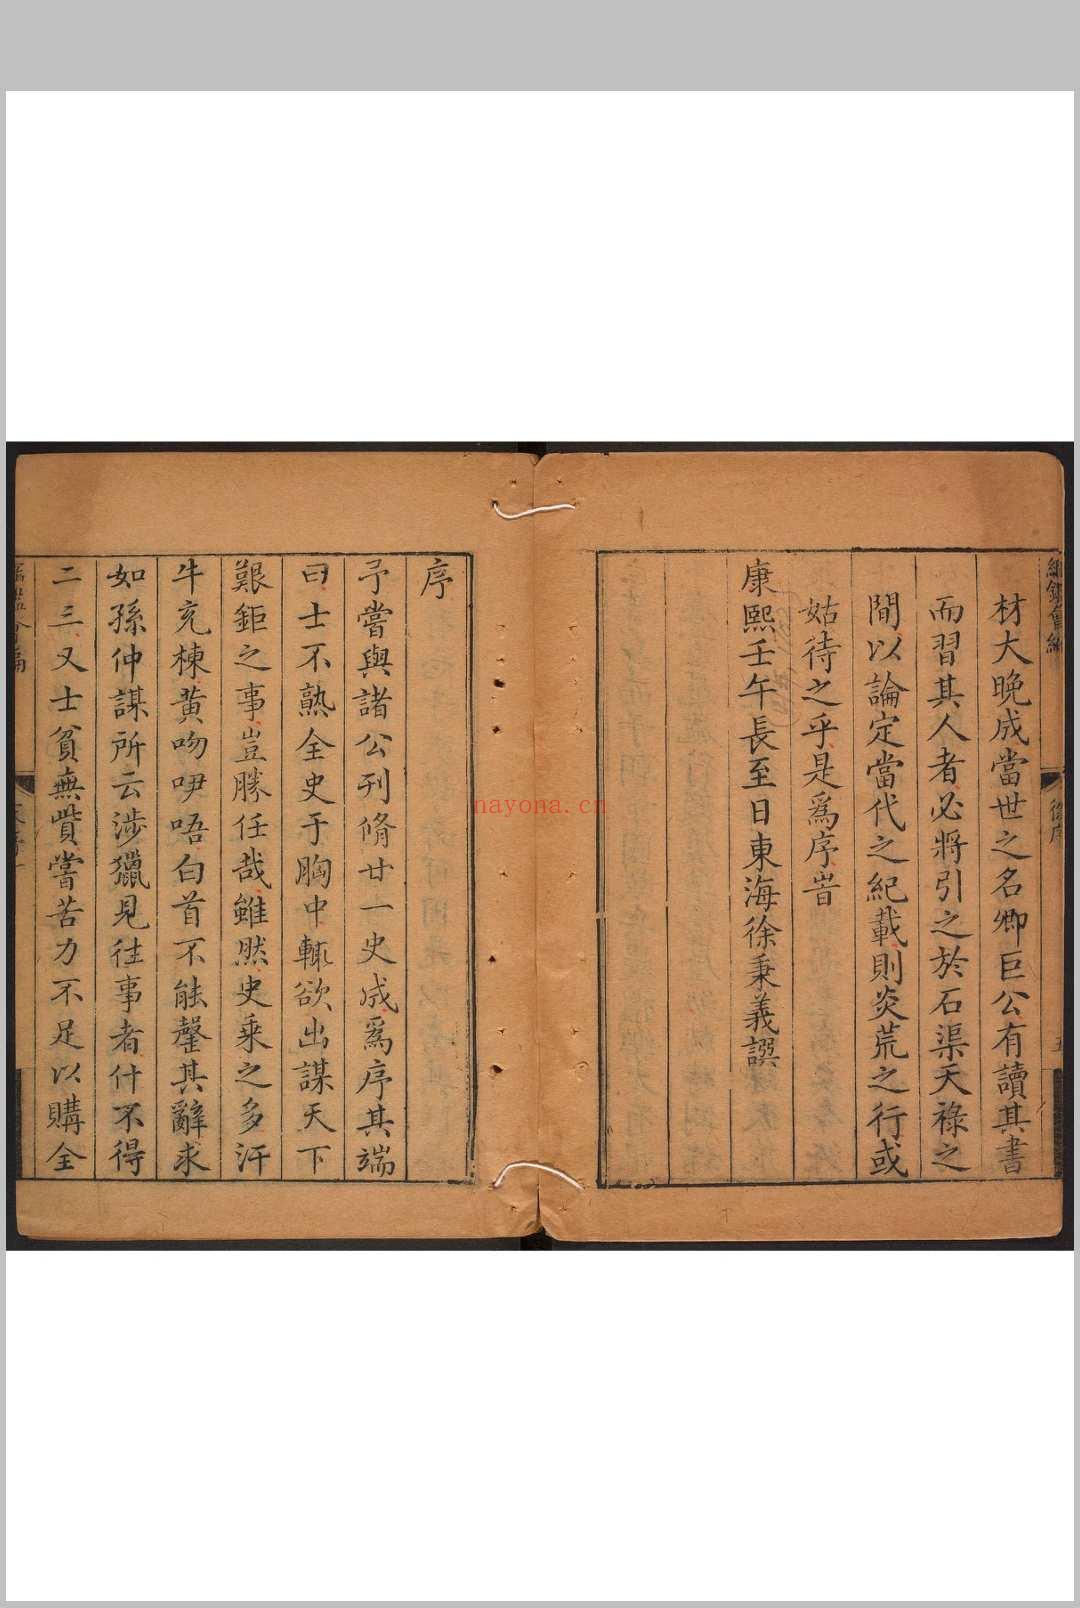 材大晩成當世之名卿巨公有讀其書
而習其人者必將引之於石渠天祿之
間以論定當代之紀載則炎荒之行或
姑待之乎是爲序旹
康熙壬午長至日東海徐秉義譔
徐序
五
序
予嘗與諸公刊脩廿一史成爲序其端
曰士不熟全史于胸中輒欲出謀天下
艱鉅之事豈勝任哉雖然史乘之多汗
牛充棟黄吻咿唔白首不能罄其辭求
如孫仲謀所云涉獵見往事者什不得
二三又士貧無貲嘗苦力不足以購全
nayona.cn